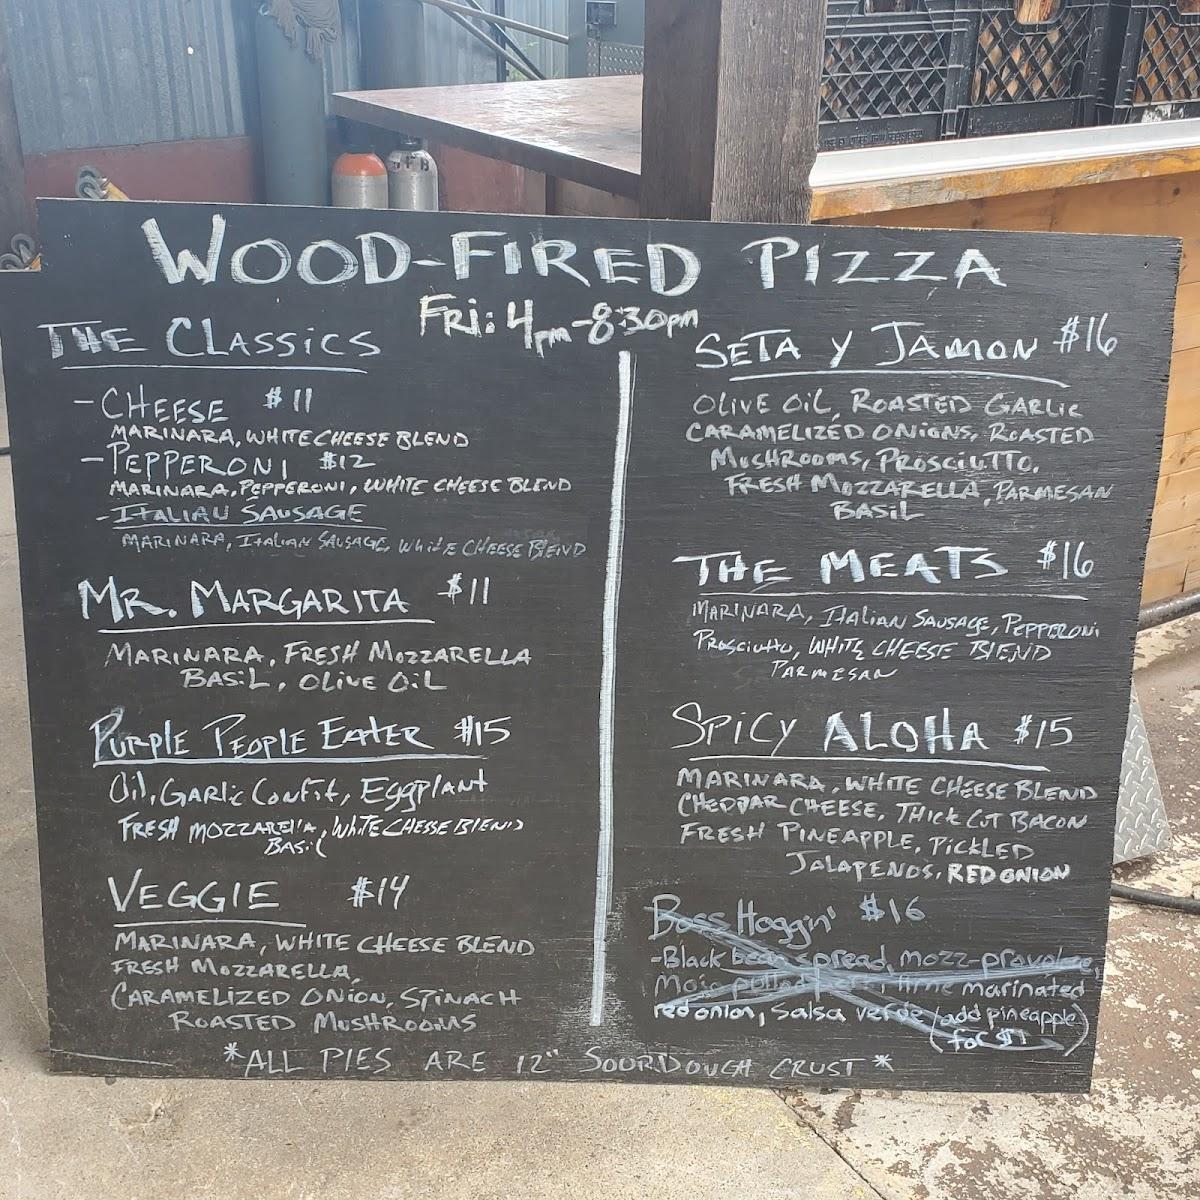 WOOD-FIRED PIZZA
FRi: 4pm-8:30pm
THE CLASSICS
- CHEESE $11
MARINARA, WHITE CHEESE BLEND
- PEPPERONI $12
MARINARA, PEPPERONI, WHITE CHEESE BLEND
- ITALIAN SAUSAGE
MARINARA, ITALIAN SAUSAGE, WHITE CHEESE BLEND
MR. MARGARITA $11
MARINARA, FRESH MOZZARELLA
BASIL, OLIVE OIL
PURPLE PEOPLE EATER $15
Oil, GARLIC CONFIT, EGGPLANT
FRESH MOZZARELLA, WHITE CHESSE BLEND
BASIL
VEGGIE $14
MARINARA, WHITE CHEESE BLEND
FRESH MOZZARELLA,
CARAMELIZED ONION, SPINACH
ROASTED MUSHROOMS
SETA Y JAMON $16
OLIVE OIL, ROASTED GARLIC
CARAMELIZED ONIONS, ROASTED
MUSHROOMS, PROSCIUTTO,
FRESH MOZZARELLA, PARMESAN
BASIL
THE MEATS $16
MARINARA, ITALIAN SAUSAGE, PEPPERONI
PROSCIUTTO, WHITE CHEESE BLEND
PARMESAN
SPICY ALOHA $15
MARINARA, WHITE CHEESE BLEND
CHEDDAR CHEESE, THICK CUT BACON
FRESH PINEAPPLE, PICKLED
JALAPENOS, RED ONION
Boss Hoggin' $16
-Black bean spread, mozz-provolone,
Mojo pulled pork, lime marinated
red onion, salsa verde (add pineapple
for $1)
*ALL PIES ARE 12" SOURDOUGH CRUST*